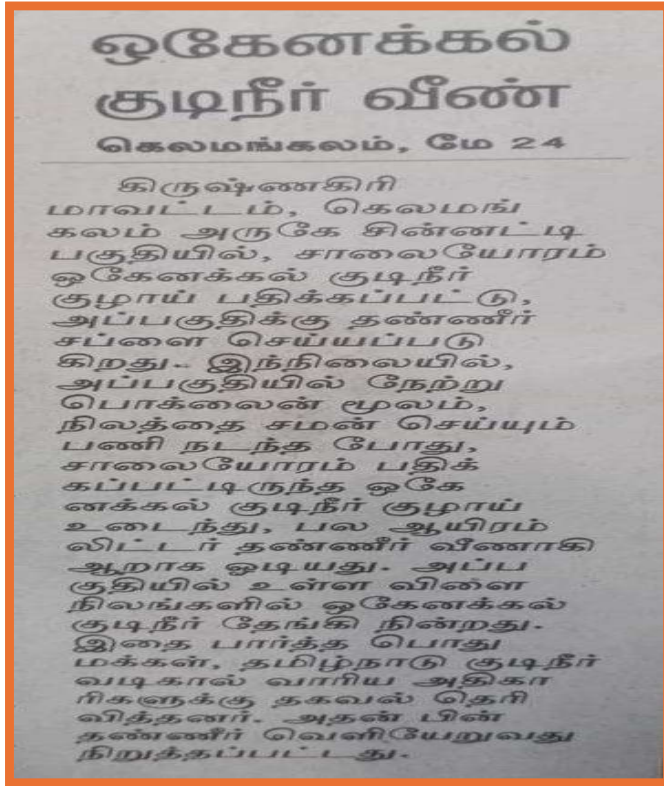 ஒகேனக்கல்
குடிநீர் வீண்
கெலமங்கலம், மே 24
கிருஷ்ணகிரி
மாவட்டம், கெலமங்
கலம் அருகே சின்னட்டி
பகுதியில், சாலையோரம்
ஒகேனக்கல் குடிநீர்
குழாய் பதிக்கப்பட்டு,
அப்பகுதிக்கு தண்ணீர்
சப்ளை செய்யப்படு
கிறது. இந்நிலையில்,
அப்பகுதியில் நேற்று
பொக்லைன் மூலம்,
நிலத்தை சமன் செய்யும்
பணி நடந்த போது,
சாலையோரம் பதிக்
கப்பட்டிருந்த ஒகே
னக்கல் குடிநீர் குழாய்
உடைந்து, பல ஆயிரம்
லிட்டர் தண்ணீர் வீணாகி
ஆறாக ஓடியது. அப்ப
குதியில் உள்ள விளை
நிலங்களில் ஒகேனக்கல்
குடிநீர் தேங்கி நின்றது.
இதை பார்த்த பொது
மக்கள், தமிழ்நாடு குடிநீர்
வடிகால் வாரிய அதிகா
ரிகளுக்கு தகவல் தெரி
வித்தனர். அதன் பின்
தண்ணீர் வெளியேறுவது
நிறுத்தப்பட்டது.